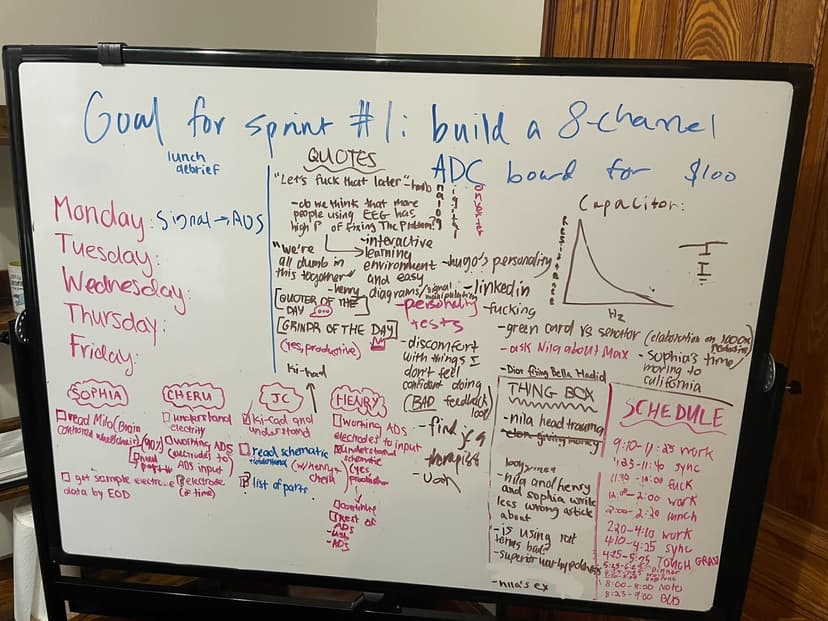 Goal for sprint #1: build a 8-channel
ADC board for $100
lunch
debrief
Monday: Signal → ADS
Tuesday:
Wednesday:
Thursday:
Friday:
QUOTES
"Let's fuck that later"
- do we think that more
people using EEG has
high P of fixing The Problem?
"we're
all dumb in
this together"
- henry
[QUOTER OF THE
DAY]
[GRINDR OF THE DAY]
(yes, productive)
- interactive
learning
environment
and easy
diagrams/signal
manipulating
- hugo's personality
- linkedin
- fucking
- personality
tests
- discomfort
with things I
don't feel
confident doing
(BAD feedback
loop)
- finding a
therapist
Capacitor:
Resistance
Hz
- green card vs senator (elaboration on 1000x
- ask Nila about Max
- Sophia's time/
moving to
california
- Dior firing Bella Hadid
SOPHIA
read Milo (Brain
controlled wheelchair) (90%)
get sample electrode
data by EOD
CHERU
understand
electricity
working ADS
(electrodes to)
ADS input
electrode
(if time)
JC
Ki-cad
Ki-cad and
understand
read schematic
(w/henry +
cheru)
list of parts
HENRY
working ADS
electrodes to input
understand
schematic
(yes,
productive)
continue
rest of
ADS
- USB
- ADS
THING BOX
- nila head trauma
- elon giving money
- nila and henry
and sophia write
less wrong article
about
- is using rat
terms bad?
- nila's ex
SCHEDULE
9:10-11:25 work
11:25-11:40 sync
11:40-12:00 fuck
12:00-2:00 work
2:00-2:20 lunch
2:20-4:10 work
4:10-4:25 sync
4:25-5:25 TOUCH GRASS
dinner
8:00-8:20 Notes